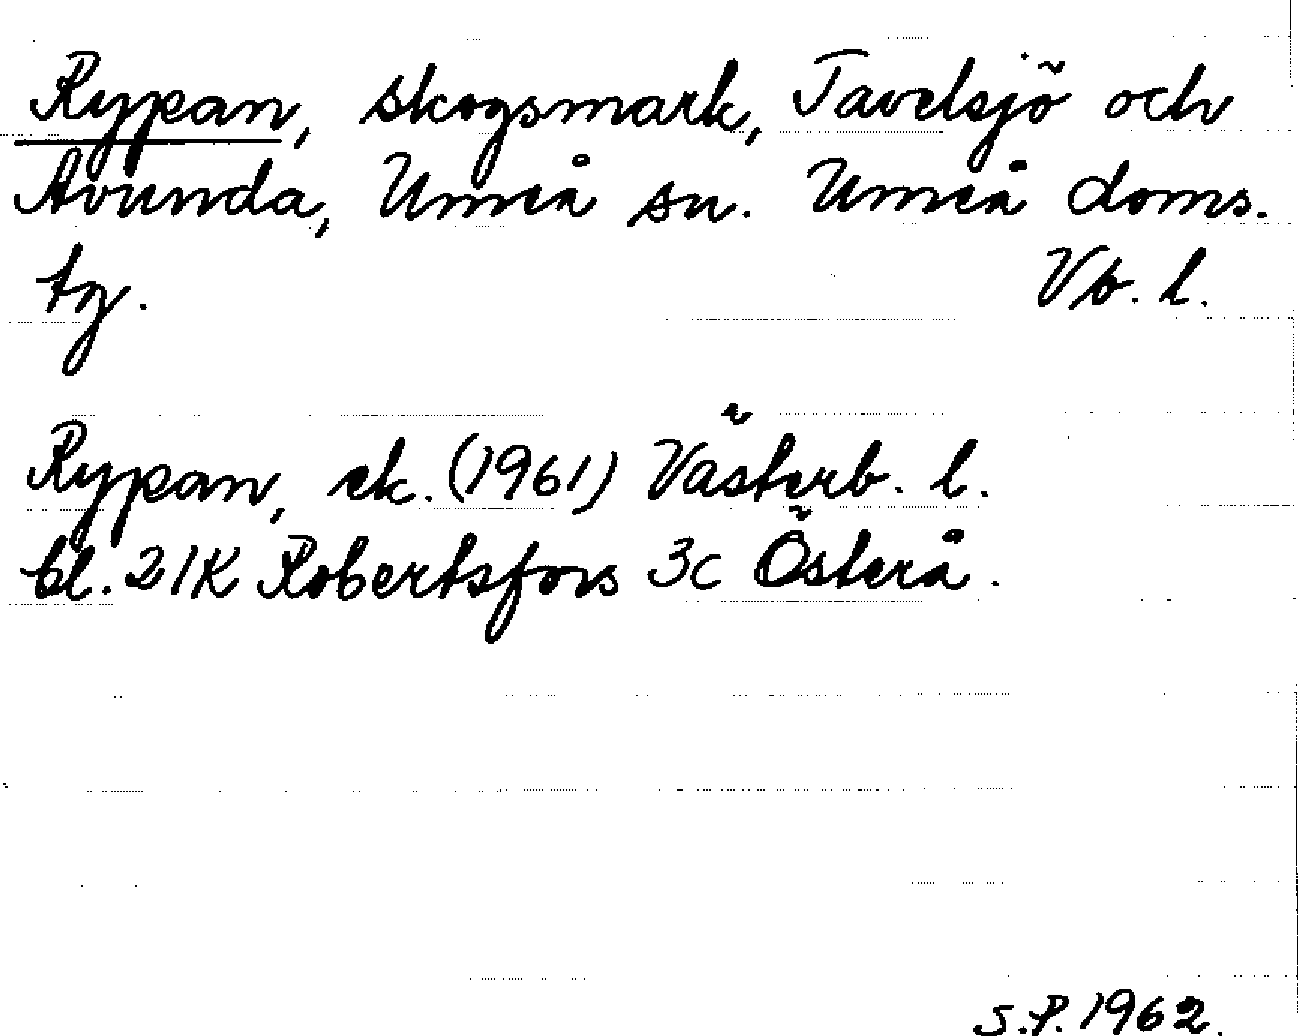 Rypan, skogsmark, Tavelsjö och
Avunda, Umeå sn. Umeå doms.
tg. Vb. l.
Rypan, ek. (1961) Västerb. l.
bl. 21K Robertsfors 3c Österå.
S.P. 1962.